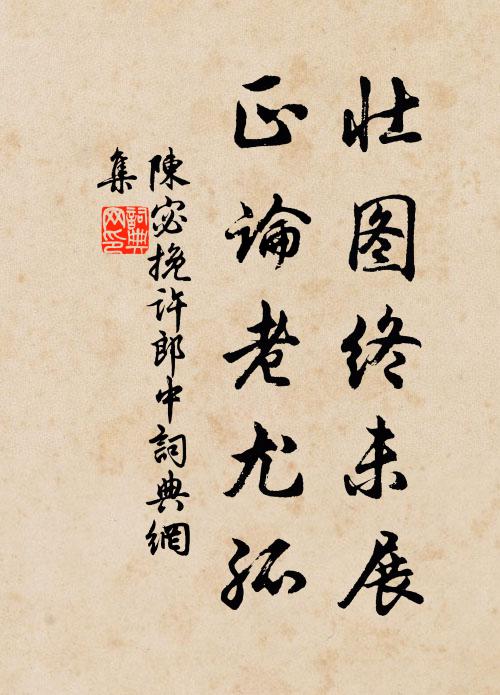 壮图终未展
正论老尤孤
陳宓挽许郎中詞典網
集
詞典
网印